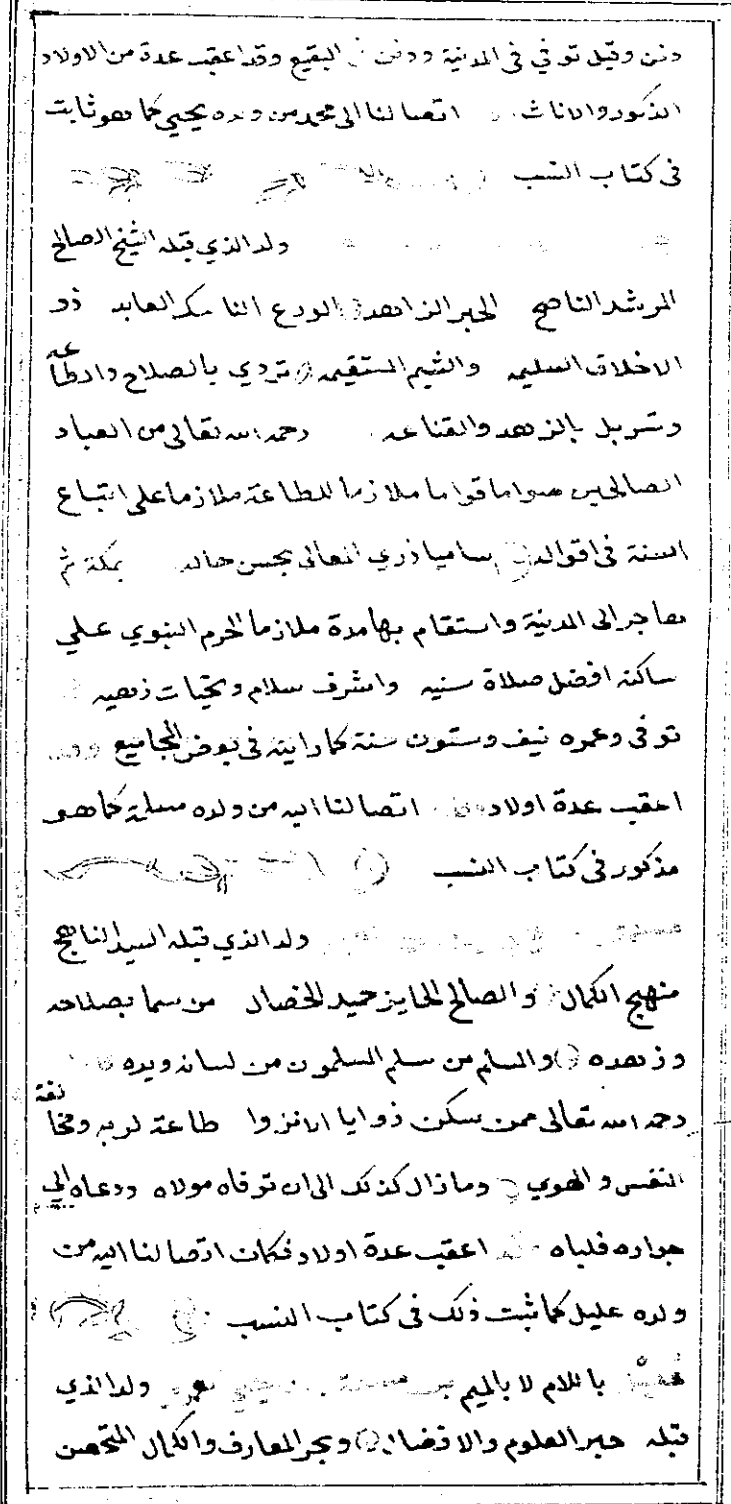 دفن وقيل توفي في المدينة ودفن في البقيع وقد اعقب عدة من الاولاد
الذكور والاناث اتصالنا الى محمد من ولده يحيى كما هو ثابت
في كتاب النسب
ولد الذي قبله الشيخ الصالح
المرشد الناصح الحبر الزاهد الورع الناسك العابد ذو
الاخلاق السليمه والشيم المستقيمه تردي بالصلاح والطاعه
وتسربل بالزهد والقناعه رحمه الله تعالى من العباد
الصالحين صواما قواما ملازما للطاعة ملازما على اتباع
السنة في اقواله ساميا ذري المعالى بحسن حاله بمكة ثم
هاجر الى المدينة واستقام بها مدة ملازما الحرم النبوي علي
ساكنه افضل صلاة سنيه واشرف سلام وتحيات زهيه
توفى وعمره نيف وستون سنة كما رايته في بعض المجاميع
اعقب عدة اولاد اتصالنا اليه من ولده مسلمة كما هو
مذكور في كتاب النسب
ولد الذي قبله السيد الناهج
منهج الكمال والصالح الحايز حميد الخصال من سما بصلاحه
وزهده والمسلم من سلم المسلمون من لسانه ويده
رحمه الله تعالى ممن سكن زوايا الانزوا طاعة لربه ومخالفة
النفس والهوي وما زال كذلك الى ان توفاه مولاه ودعاه الي
جواره فلباه اعقب عدة اولاد فكان اتصالنا اليه من
ولده عليل كما ثبت ذلك في كتاب النسب
باللام لا بالميم بن ولد الذي
قبله حبر العلوم والافضال وبحر المعارف والكمال المتحصن